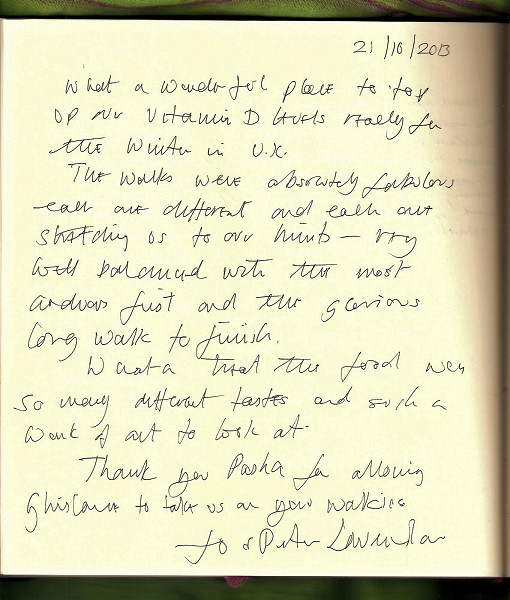 21/10/2013
What a wonderful place to top
up our Vitamin D levels ready for
the Winter in U.K.
The walks were absolutely fabulous
each one different and each one
stretching us to our limits – very
well balanced with the most
arduous first and the glorious
long walk to finish.
What a treat the food was
so many different tastes and such a
work of art to look at.
Thank you Pasha for allowing
Ghislaine to take us on your walking
Jo & Peter Lavender